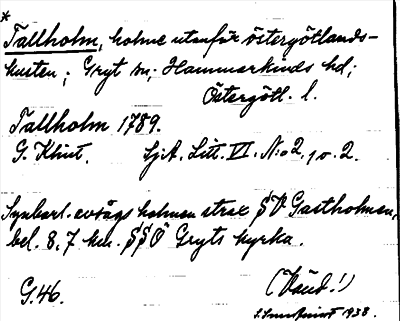 *
Tallholm, holme utanför östergötlands-
kusten; Gryt sn; Hammarkinds hd;
Östergötl. l.
Tallholm 1789.
G. Klint. SjA, Litt. VI. N:o 2, 2.
Synbarl. avsågs holmen strax SV Gastholmen,
bel. 8,7 km. SSO Gryts kyrka.
G.46. (Vänd!)
1938.